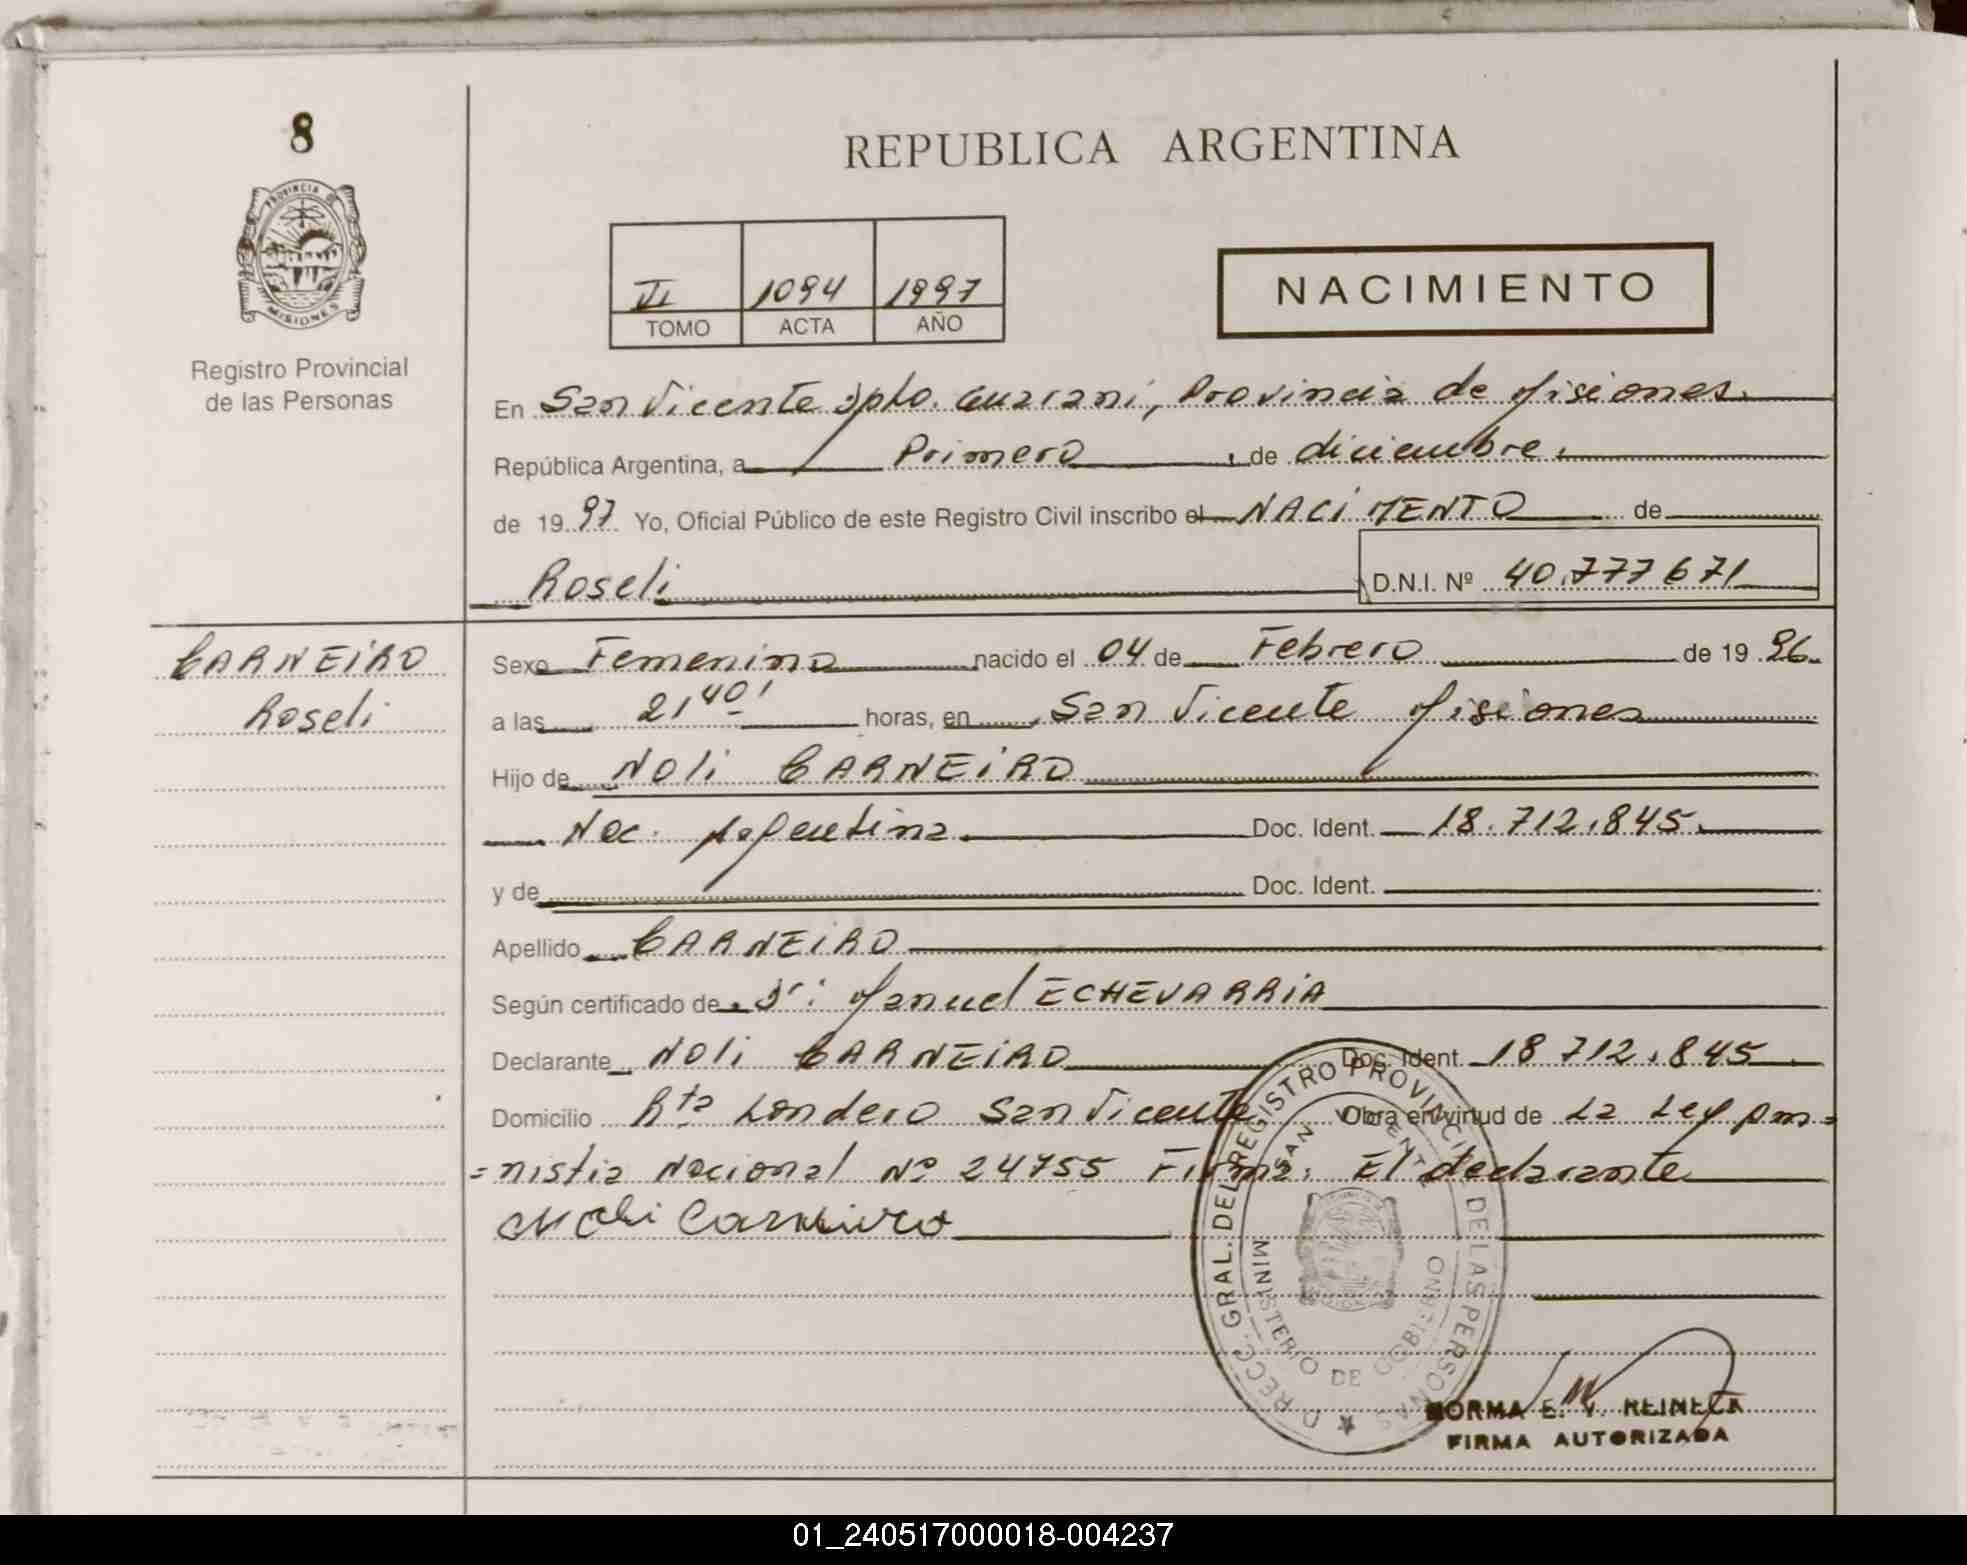 8
PROVINCIA DE
MISIONES
Registro Provincial
de las Personas
REPUBLICA ARGENTINA
VI 1094 1997
TOMO ACTA AÑO
NACIMIENTO
En San Vicente Dpto. Guaraní, Provincia de Misiones.
República Argentina, a Primero de diciembre.
de 19 97 Yo, Oficial Público de este Registro Civil inscribo el NACIMENTO de
Roseli D.N.I. Nº 40.777671
CARNEIRO
Roseli
Sexo Femenino nacido el 04 de Febrero de 19 96.
a las 21,40' horas, en San Vicente Misiones
Hijo de Noli CARNEIRO
Nac. Argentina. Doc. Ident. 18.712.845.
y de Doc. Ident.
Apellido CARNEIRO
Según certificado de Dr: Manuel ECHEVARRIA
Declarante Noli CARNEIRO Doc. Ident. 18 712.845
Domicilio Rta Londero San Vicente Obra en virtud de La Ley Am=
=nistia Nacional Nº 24755 Firma: El declarante
Noli Carneiro
DIRECC. GRAL. DEL REGISTRO PROVINCIAL DE LAS PERSONAS
SAN VICENTE
MINISTERIO DE GOBIERNO
NORMA E. V. REINECK
FIRMA AUTORIZADA
01_240517000018-004237